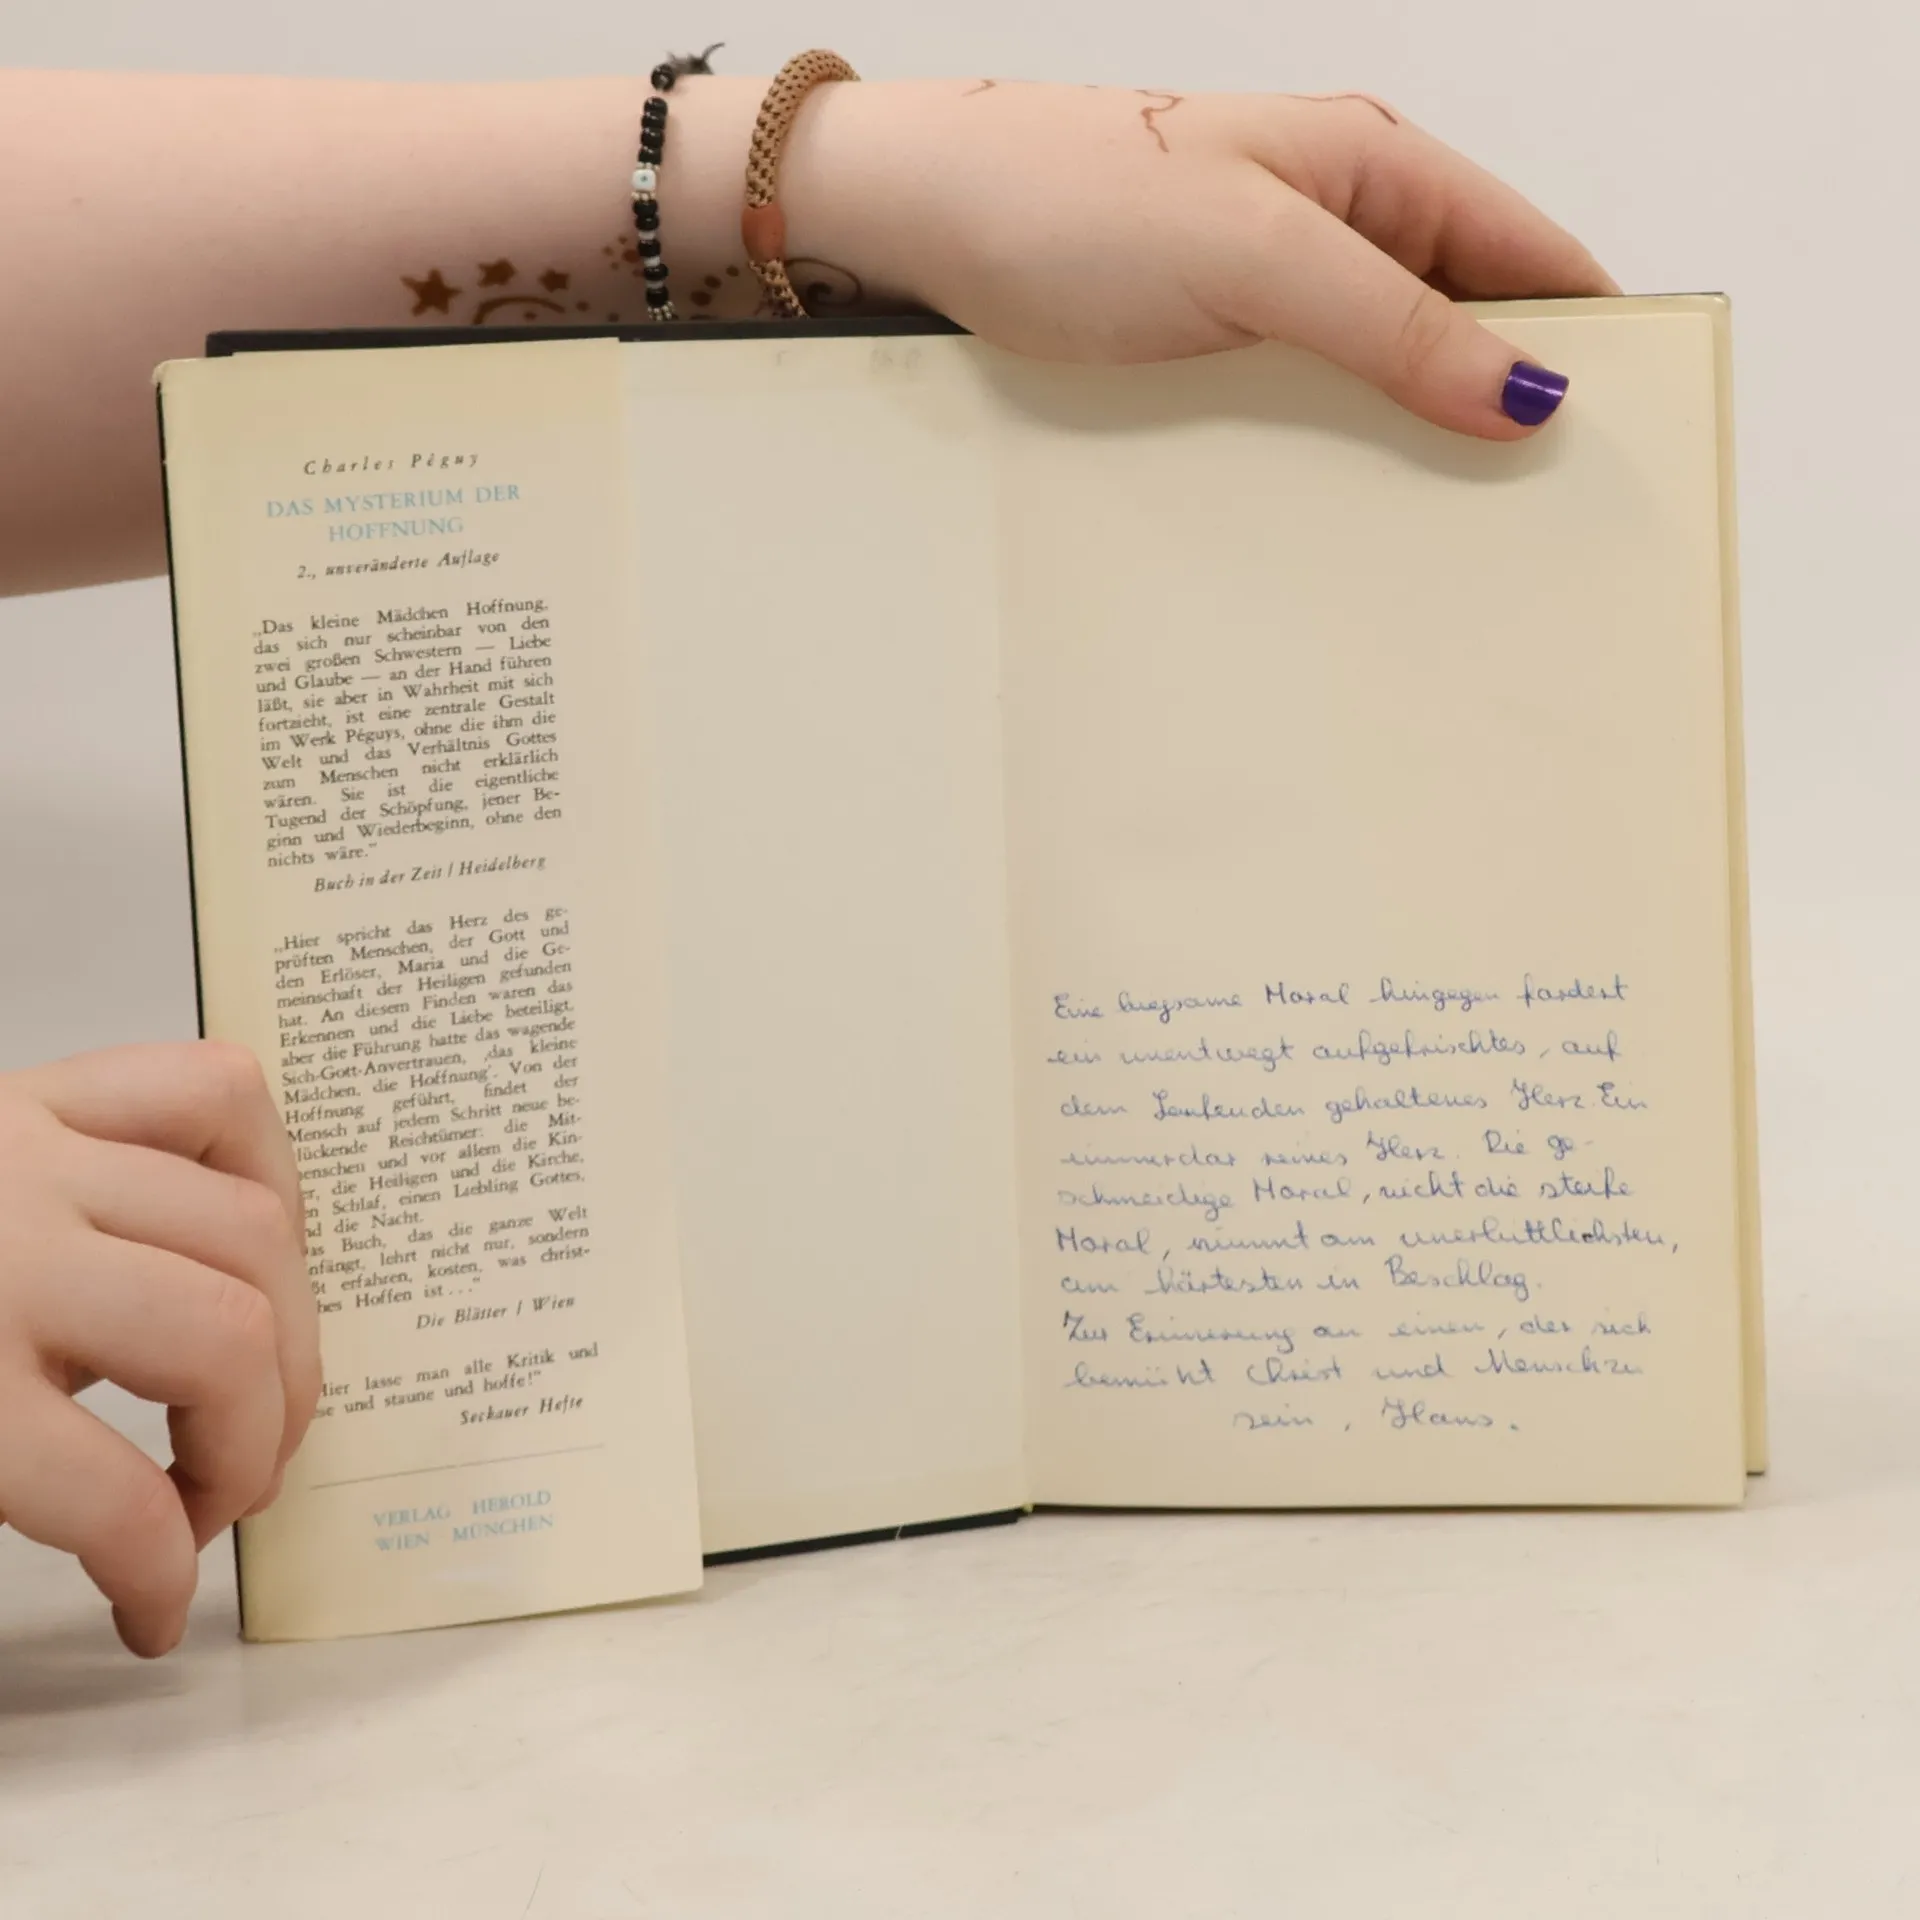 Charles Péguy
DAS MYSTERIUM DER
HOFFNUNG
2., unveränderte Auflage
„Das kleine Mädchen Hoffnung,
das sich nur scheinbar von den
zwei großen Schwestern — Liebe
und Glaube — an der Hand führen
läßt, sie aber in Wahrheit mit sich
fortzieht, ist eine zentrale Gestalt
im Werk Péguys, ohne die ihm die
Welt und das Verhältnis Gottes
zum Menschen nicht erklärlich
wären. Sie ist die eigentliche
Tugend der Schöpfung, jener Be-
ginn und Wiederbeginn, ohne den
nichts wäre.“
Buch in der Zeit / Heidelberg
„Hier spricht das Herz des ge-
prüften Menschen, der Gott und
den Erlöser, Maria und die Ge-
meinschaft der Heiligen gefunden
hat. An diesem Finden waren das
Erkennen und die Liebe beteiligt,
aber die Führung hatte das wagende
Sich-Gott-Anvertrauen, ‚das kleine
Mädchen, die Hoffnung‘. Von der
Hoffnung geführt, findet der
Mensch auf jedem Schritt neue be-
lückende Reichtümer: die Mit-
enschen und vor allem die Kin-
er, die Heiligen und die Kirche,
en Schlaf, einen Liebling Gottes,
nd die Nacht.
as Buch, das die ganze Welt
nfängt, lehrt nicht nur, sondern
ßt erfahren, kosten, was christ-
hes Hoffen ist . . .“
Die Blätter / Wien
Hier lasse man alle Kritik und
se und staune und hoffe!“
Seckauer Hefte
VERLAG HEROLD
WIEN MÜNCHEN
Eine biegsame Moral hingegen fordert
ein unentwegt aufgefrischtes, auf
dem Laufenden gehaltenes Herz. Ein
immerdar reines Herz. Die ge-
schmeidige Moral, nicht die starke
Moral, nimmt am unerbittlichsten,
am härtesten in Beschlag.
Zur Erinnerung an einen, der sich
bemüht Christ und Mensch zu
sein, Hans.